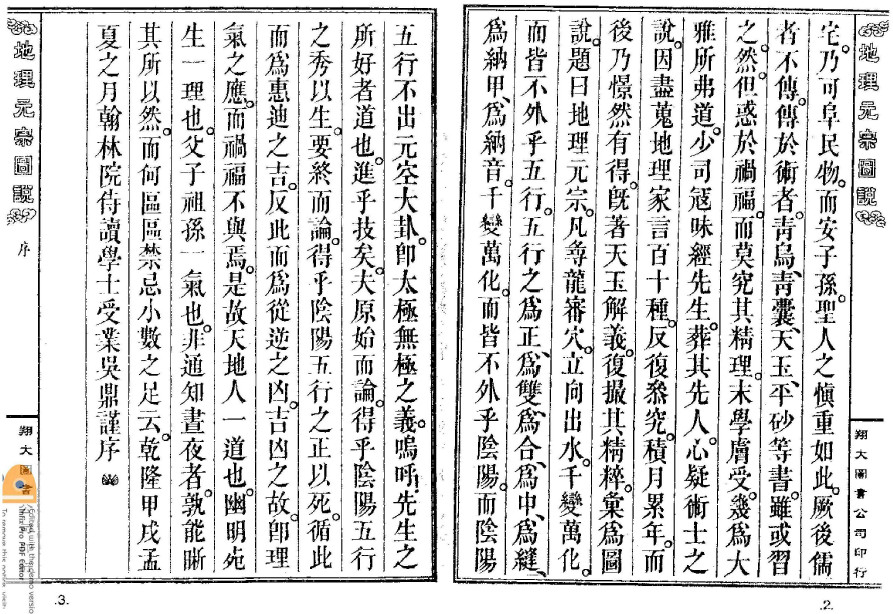 地理元宗圖說
翔大圖書公司印行
宅。乃可阜民物。而安子孫。聖人之慎重如此。厥後儒
者不傳。傳於術者。靑烏、靑囊、天玉、平砂等書。雖或習
之。然但惑於禍福。而莫究其精理。末學膚受。幾爲大
雅所弗道。少司冦味經先生。葬其先人。心疑術士之
說。因盡蒐地理家言百十種。反復叅究。積月累年。而
後乃憬然有得。旣著天玉解義。復撮其精粹。彙爲圖
說。題曰地理元宗。凡尋龍審穴。立向出水。千變萬化。
而皆不外乎五行。五行之爲正、爲雙、爲合、爲中、爲縫、
爲納甲、爲納音。千變萬化。而皆不外乎陰陽。而陰陽
.2.
五行不出元空大卦。卽太極無極之義。嗚呼。先生之
所好者道也。進乎技矣。夫原始而論。得乎陰陽五行
之秀以生。要終而論。得乎陰陽五行之正以死。循此
而爲惠迪之吉。反此而爲從逆之凶。吉凶之故。卽理
氣之應。而禍福不與焉。是故天地人一道也。幽明死
生一理也。父子祖孫一氣也。非通知晝夜者。孰能晰
其所以然。而何區區禁忌小數之足云。乾隆甲戌孟
夏之月翰林院侍讀學士受業吳鼎謹序
地理元宗圖說
序
翔大圖書
.3.